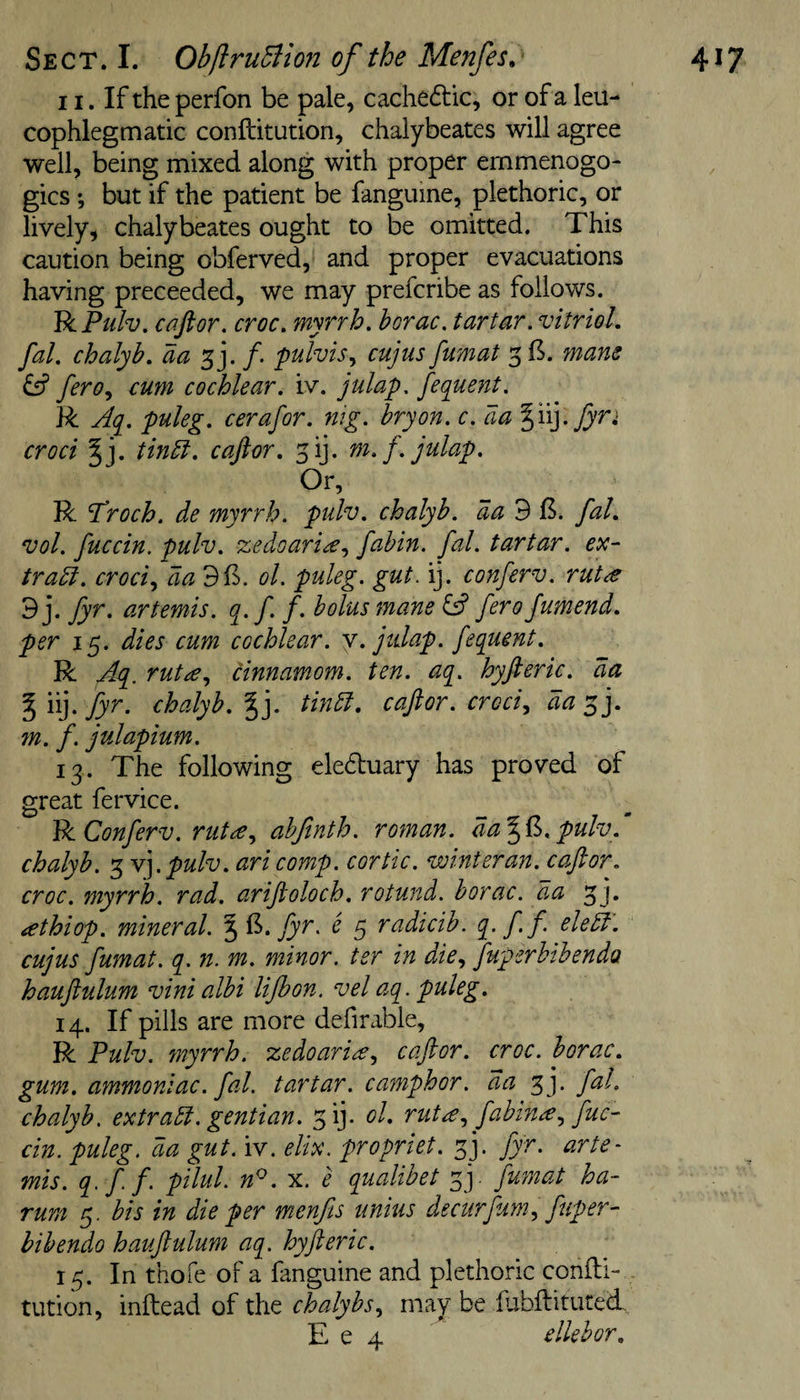 SECT. I. Obſtruction of the Menſes. 417
11. If the perſon be pale, cachectic, or of a leu-
cophlegmatic conſtitution, chalybeates will agree
well, being mixed along with proper emmenogo-
gics; but if the patient be ſanguine, plethoric, or
lively, chalybeates ought to be omitted. This
caution being obſerved, and proper evacuations
having preceeded, we may preſcribe as follows.
℞ Pulv. caſtor. croc. myrrh. borac. tartar. vitriol.
ſal. chalyb. āa ʒj. f. pulvis, cujus ſumat ʒß. mane
& ſero, cum cochlear. iv. julap. ſequent.
℞ Aq. puleg. ceraſor. nig. bryon. c. āa ℥iij. ſyr.
croci ℥j. tinct. caſtor. ʒij. m. f. julap.
Or,
℞ Troch. de myrrh. pulv. chalyb. āa ℈ ß. ſal.
vol. ſuccin. pulv. zedoariæ, ſabin. ſal. tartar. ex-
tract. croci, āa ℈ß. ol. puleg. gut. ij. conſerv. rutæ
℈j. ſyr. artemis. q. ſ. f. bolus mane & ſero ſumend.
per 15. dies cum cochlear. v. julap. ſequent.
℞ Aq. rutæ, cinnamom. ten. aq. hyſteric. āa
℥ iij. ſyr. chalyb. ℥j. tinct. caſtor. croci, āa ʒj.
m. f. julapium.
13. The following electuary has proved of
great ſervice.
℞ Conſerv. rutæ, abſinth. roman. āa ℥ß. pulv.
chalyb. ʒ vj. pulv. ari comp. cortic. winteran. caſtor.
croc. myrrh. rad. ariſtoloch. rotund. borac. āa ʒj.
æthiop. mineral. ℥ ß. ſyr. é 5 radicib. q. ſ. f. elect.
cujus ſumat. q. n. m. minor. ter in die, ſuperbibendo
hauſtulum vini albi liſbon. vel aq. puleg.
14. If pills are more deſirable,
℞ Pulv. myrrh. zedoariæ, caſtor. croc. borac.
gum. ammoniac. ſal. tartar. camphor. āa ʒj. ſal.
chalyb. extract. gentian. ʒij. ol. rutæ, ſabinæ, ſuc-
cin. puleg. āa gut. iv. elix. propriet. ʒj. ſyr. arte-
mis. q. ſ. f. pilul. nº. x. è qualibet ʒj. ſumat ha-
rum 5. bis in die per menſis unius decurſum, ſuper-
bibendo hauſtulum aq. hyſteric.
15. In thoſe of a ſanguine and plethoric conſti-
tution, inſtead of the chalybs, may be ſubſtituted
E e 4 ellebor.